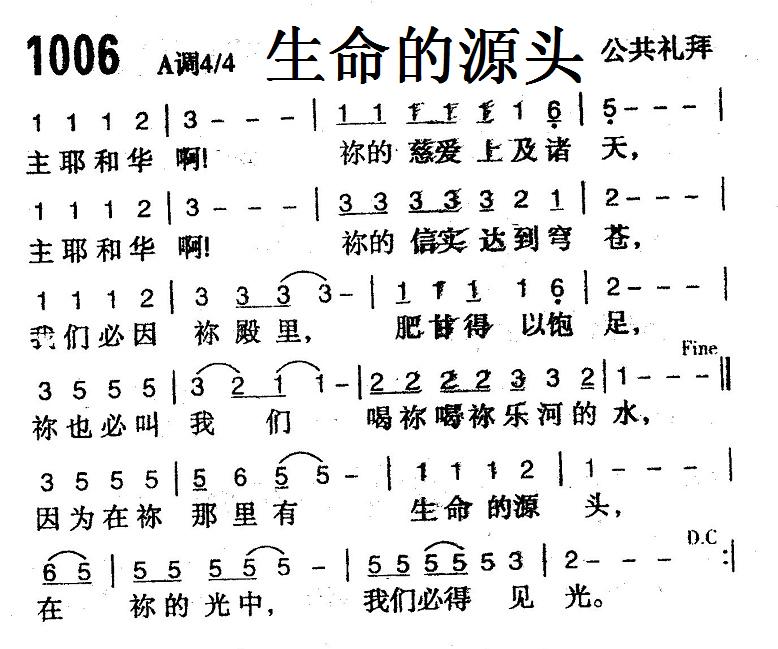 1006 A调4/4 生命的源头 公共礼拜
1 1 1 2 | 3 - - - | 1 1 1 1 1 1 1 6 | 5 - - - |
主耶和华 啊! 祢的 慈爱 上及诸 天,
1 1 1 2 | 3 - - - | 3 3 3 3 3 2 1 | 2 - - - |
主耶和华 啊! 祢的 信实 达到穹 苍,
1 1 1 2 | 3 3 3 3 - | 1 1 1 1 6 | 2 - - - |
我们必因 祢殿里, 肥甘得 以饱 足,
Fine
3 5 5 5 | 3 2 1 1 - | 2 2 2 2 3 3 2 | 1 - - - ||
祢也必叫 我 们 喝祢喝祢乐河的 水,
3 5 5 5 | 5 6 5 5 - | 1 1 1 2 | 1 - - - |
因为在祢 那里有 生命的源 头,
D.C
6 5 | 5 5 5 5 5 - | 5 5 5 5 5 3 | 2 - - - :|
在 祢的光中, 我们必得 见 光。